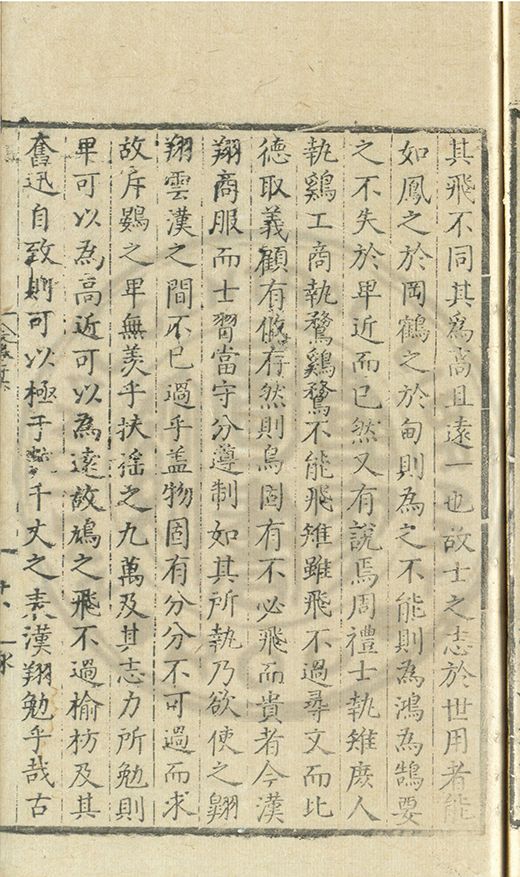 其飛不同其爲高且遠一也故士之志於世用者能
如鳳之於岡鶴之於甸則為之不能則為鴻為鵠要
之不失於卑近而已然又有說焉周禮士執雉庶人
執鷄工商執鶩鷄鶩不能飛雉雖飛不過尋文而比
徳取義顧有攸存然則鳥固有不必飛而貴者今漢
翔商服而士習當守分遵制如其所執乃欲使之翺
翔雲漢之間不已過乎盖物固有分分不可過而求
故斥鷃之卑無羨乎扶摇之九萬及其志力所勉則
卑可以為高近可以為遠故鳩之飛不過榆枋及其
奮迅自致則可以極于千丈之素漢翔勉乎哉古